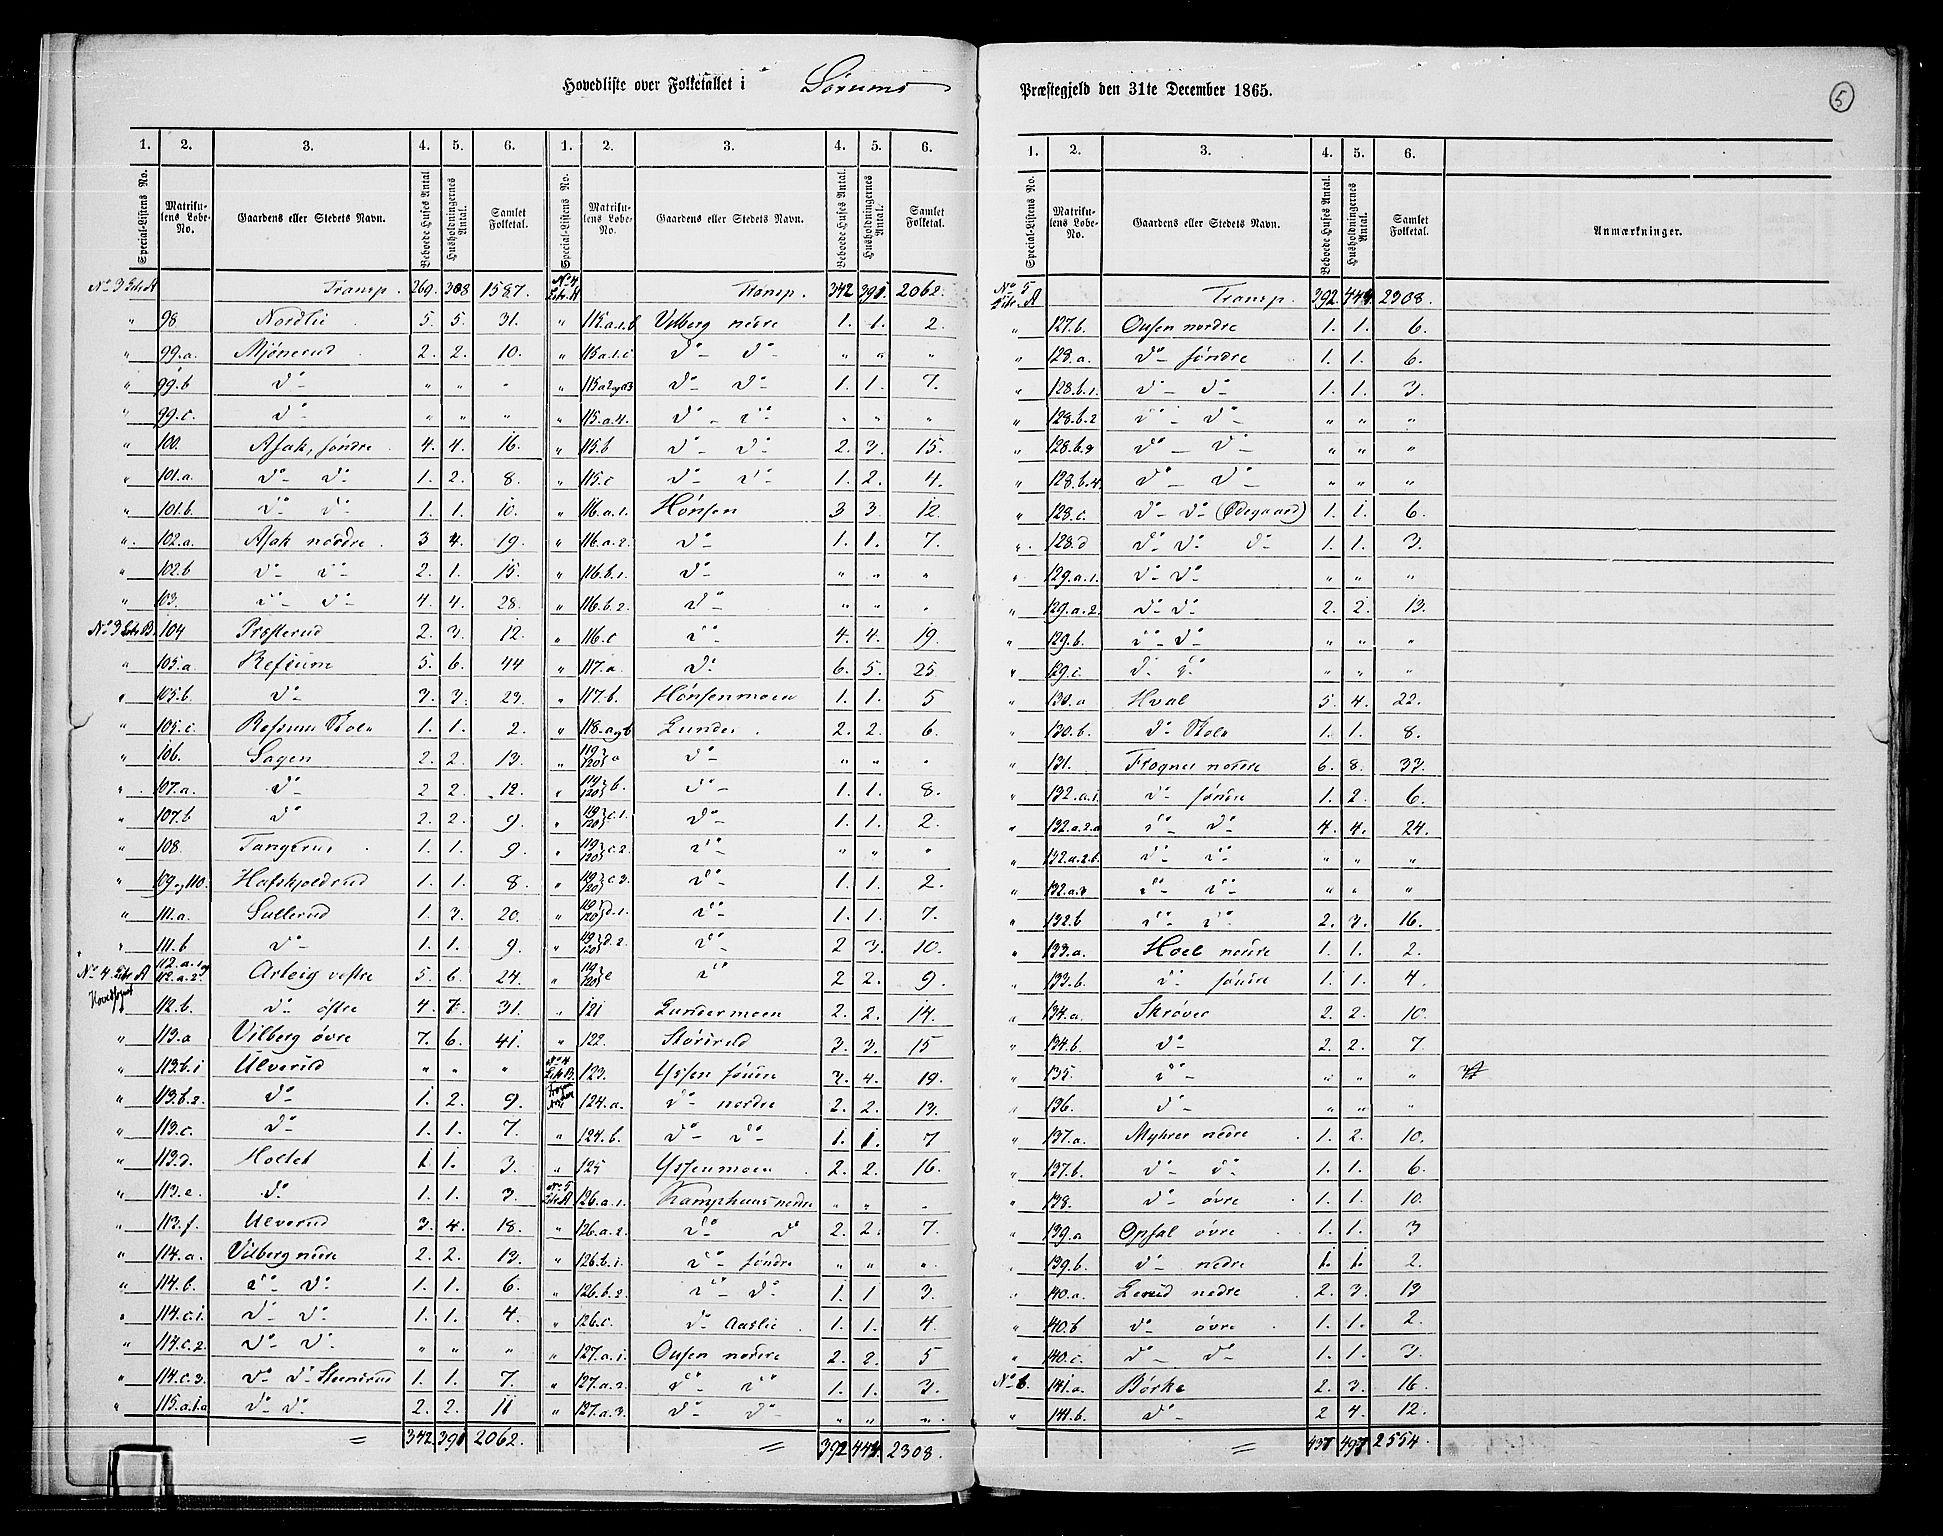 Hovedliste over Folketallet i Sørums Præstegjeld den 31te December 1865.
5
1. 2. 3. 4. 5. 6.
Special-Listens No. Matrikulens Løbe-No. Gaardens eller Stedets Navn. Beboede Huses Antal Husholdningernes Antal. Samlet Folketal.
No 3 Litr A Transp. 269. 308 1587.
" 98 Nordlie 5. 5. 31.
" 99.a. Mjønerud 2. 2. 10.
" 99.b do " " "
" 99.c. do " " "
" 100. Asak, søndre 4. 4. 16.
" 101.a. do do 1. 2. 8.
" 101.b. do do 1. 1. 10.
" 102.a. Asak nordre 3 4. 19.
" 102.b do do 2. 1. 15.
" 103. do do 4. 4. 28.
No 3 Litr B. 104 Præsterud 2. 3. 12.
" 105.a. Refsum 5. 6. 44
" 105.b. do 3. 3. 23.
" 105.c. Refsum Skole 1. 1. 2.
" 106. Sagen 2. 2. 13.
" 107.a. do 2 2. 12.
" 107.b do 2. 2. 9.
" 108. Tangerud 1. 1. 9.
" 109 og 110. Hafskjoldrud 1. 1. 8.
" 111.a. Sullerud 1. 3. 20.
" 111.b do 1. 1. 9.
No 4 Litr A 112.a.1 og 112.a.2. Arteig vestre 5. 6. 24.
Hovedsognet 112.b. do østre 4. 7. 31.
" 113.a Vilberg øvre 7. 6. 41.
" 113.b.1 Ulverud " " "
" 113.b.2. do 1. 2. 9.
" 113.c. do 1. 1. 7.
" 113.d. Holtet 1 1. 3.
" 113.e. do 1. 1. 3.
" 113.f. Ulverud 3. 4. 18.
" 114.a. Vilberg nedre 2. 2. 13.
" 114.b. do do 1. 1. 6.
" 114.c.1. do do 1. 1. 4.
" 114.c.2. do do " " "
" 114.c.3. do do 1. 1. 7.
" 115.a.1.a do do 2. 2. 11
= 342. 391 2062.
1. 2. 3. 4. 5. 6.
Special-Listens No. Matrikulens Løbe-No. Gaardens eller Stedets Navn. Beboede Huses Antal. Husholdningernes Antal. Samlet Folketal.
No 4 Litr A Transp. 342 391. 2062.
" 115.a.1.b Vilberg nedre 1. 1. 2.
" 115.a.1.c do do " " "
" 115.a.2 og a3 do do 1. 1. 7.
" 115.a.4. do do " " "
" 115.b do do 2. 3. 15.
" 115.c do do 1. 2. 4.
" 116.a.1. Hønsen 3 3. 12.
" 116.a.2. do 1. 1. 7.
" 116.b.1. do " " "
" 116.b.2. do " " "
" 116.c do 4. 4. 19.
" 117.a. do 6. 5. 25
" 117.b. Hønsenmoen 1. 1. 5
" 118.a og b Lunder 2. 2. 6.
" 119 120 } a do " " "
" 119 120 } b. do 1. 1. 8.
" 119 120 } c.1. do 1. 1. 2.
" 119 120 } c.2. do " " "
" 119 120 } c.3. do 1. 1. 2.
" 119 120 } d.1. do 1. 1. 7.
" 119 120 } d.2. do 2 3. 10.
" 119 120 } e do 2 2. 9.
" 121 Lundermoen 2. 2. 14.
" 122. Størsrud 3. 3. 15
No 4 Litr B. 123. Yssen søndre 3. 4. 19.
124.a. do nordre 2. 2. 13.
" 124.b. do do 1. 1. 7
" 125 Yssenmoen 2. 2. 16.
No 5 Litr A 126.a.1. Kamphuus nedre " " "
" 126.a.2. do do 2. 2. 7.
" 126.b.1. do søndre " " "
" 126.b.2. do do 1. 1 3.
" 126.c. do Aaslie 1. 1. 4.
" 127.a.1. Ousen nordre 2. 2. 5
" 127.a.2. do do 1. 1. 3.
" 127.a.3. do do " " "
= 392 444. 2308.
1. 2. 3. 4. 5. 6.
Special-Listens No. Matrikulens Løbe-No. Gaardens eller Stedets Navn. Beboede Huses Antal. Husholdningernes Antal. Samlet Folketal. Anmærkninger.
No 5 Litr. A Transp. 392. 444 2308.
" 127.b. Ousen nordre 1. 1. 6.
" 128.a. do søndre 1. 1. 6.
" 128.b.1. do do 1. 1. 3.
" 128.b.2 do do " " "
" 128.b.3 do do " " "
" 128.b.4. do do " " "
" 128.c. do do (Ødegaard) 1. 1. 6.
" 128.d do do do 1. 1. 3.
" 129.a.1. do do " " "
" 129.a.2. do do 2. 2. 13.
" 129.b. do do " " "
" 129.c. do do " " "
" 130.a Hval 5. 4. 22.
" 130.b. do Skole 1. 1. 8.
" 131. Frogner nordre 6. 8. 33.
" 132.a.1. do søndre 1. 2. 6.
" 132.a.2.a do do 4. 4. 24.
" 132.a.2.b. do do " " "
" 132.a.3 do do " " "
" 132.b do do 2. 3. 16.
" 133.a. Hoel nedre 1. 1. 2.
" 133.b. do søndre 1. 1. 4.
" 134.a. Skrøver 2. 2. 10.
" 134.b. do 2. 2. 7
" 135. do " " "
" 136. do " " "
" 137.a. Myhrer nedre 1. 2. 10.
" 137.b. do do 1. 1. 6.
" 138. do øvre 1. 1. 10.
" 139.a Opsal øvre 1. 1. 3
" 139.b. do nedre 1. 1. 2.
" 140.a. Lerud nedre 2. 3. 13
" 140.b do øvre 1. 1. 2.
" 140.c. do do 1. 1. 3.
No 6. 141.a. Børke 2. 3. 16.
" 141.b. do 2 4. 12.
= 437 497 2554.